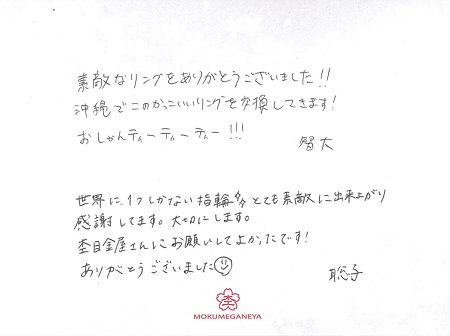 素敵なリングをありがとうございました!!
沖縄でこのかっこいいリングを交換してきます!
おしゃんティーティーティー!!!
智大
世界に1つしかない指輪がとても素敵に出来上がり
感謝してます。大切にします。
杢目金屋さんにお願いしてよかったです!
ありがとうございました
聡子
MOKUMEGANEYA